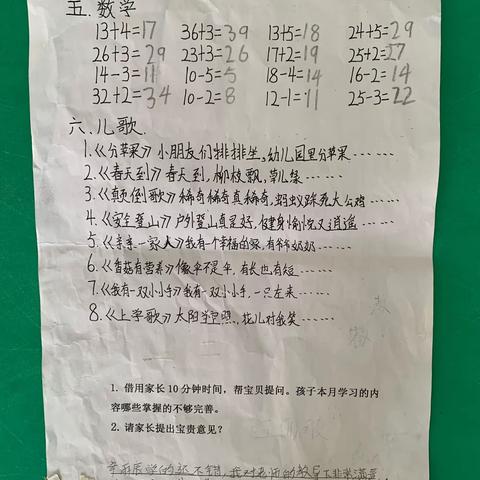 五.数学
13+4=17 36+3=39 13+5=18 24+5=29
26+3=29 23+3=26 17+2=19 25+2=27
14-3=11 10-5=5 18-4=14 16-2=14
32+2=34 10-2=8 12-1=11 25-3=22
六.儿歌.
1.《分苹果》小朋友们排排坐,幼儿园里分苹果……
2.《春天到》春天到,柳枝飘,草儿绿……
3.《颠倒歌》稀奇稀奇真稀奇,蚂蚁踩死大公鸡……
4.《安全登山》户外登山真是好,健身愉悦又逍遥……
5.《亲亲一家人》我有个幸福的家,有爷爷奶奶……
6.《香菇有营养》像伞不是伞,有长也有短……
7.《我有一双小小手》我有一双小小手,一只左来……
8.《上学歌》太阳当空照,花儿对我笑……
1. 借用家长10分钟时间，帮宝贝提问。孩子本月学习的内
容哪些掌握的不够完善。
2. 请家长提出宝贵意见？
学的 不错,我对老师的教 非常满意